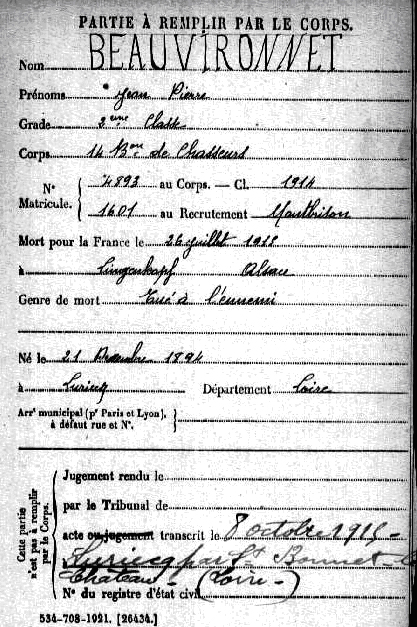 PARTIE À REMPLIR PAR LE CORPS.
Nom BEAUVIRONNET
Prénoms Jean Pierre
Grade 2eme Classe
Corps 14 Bon de Chasseurs
N° Matricule. { 4893 au Corps. — Cl. 1914
1601 au Recrutement Montbrison
Mort pour la France le 26 juillet 1915
à Lingenkopf Alsace
Genre de mort Tué à l'ennemi
Né le 21 Décembre 1894
à Luriecq Département Loire
Arrt municipal (pr Paris et Lyon), à défaut rue et N°. }
Cette partie n'est pas à remplir par le Corps.
Jugement rendu le
par le Tribunal de
acte ou jugement transcrit le 8 octobre 1915
à Luriecq par St Bonnet-le
Château (Loire)
N° du registre d'état civil
534-708-1921. [26434.]